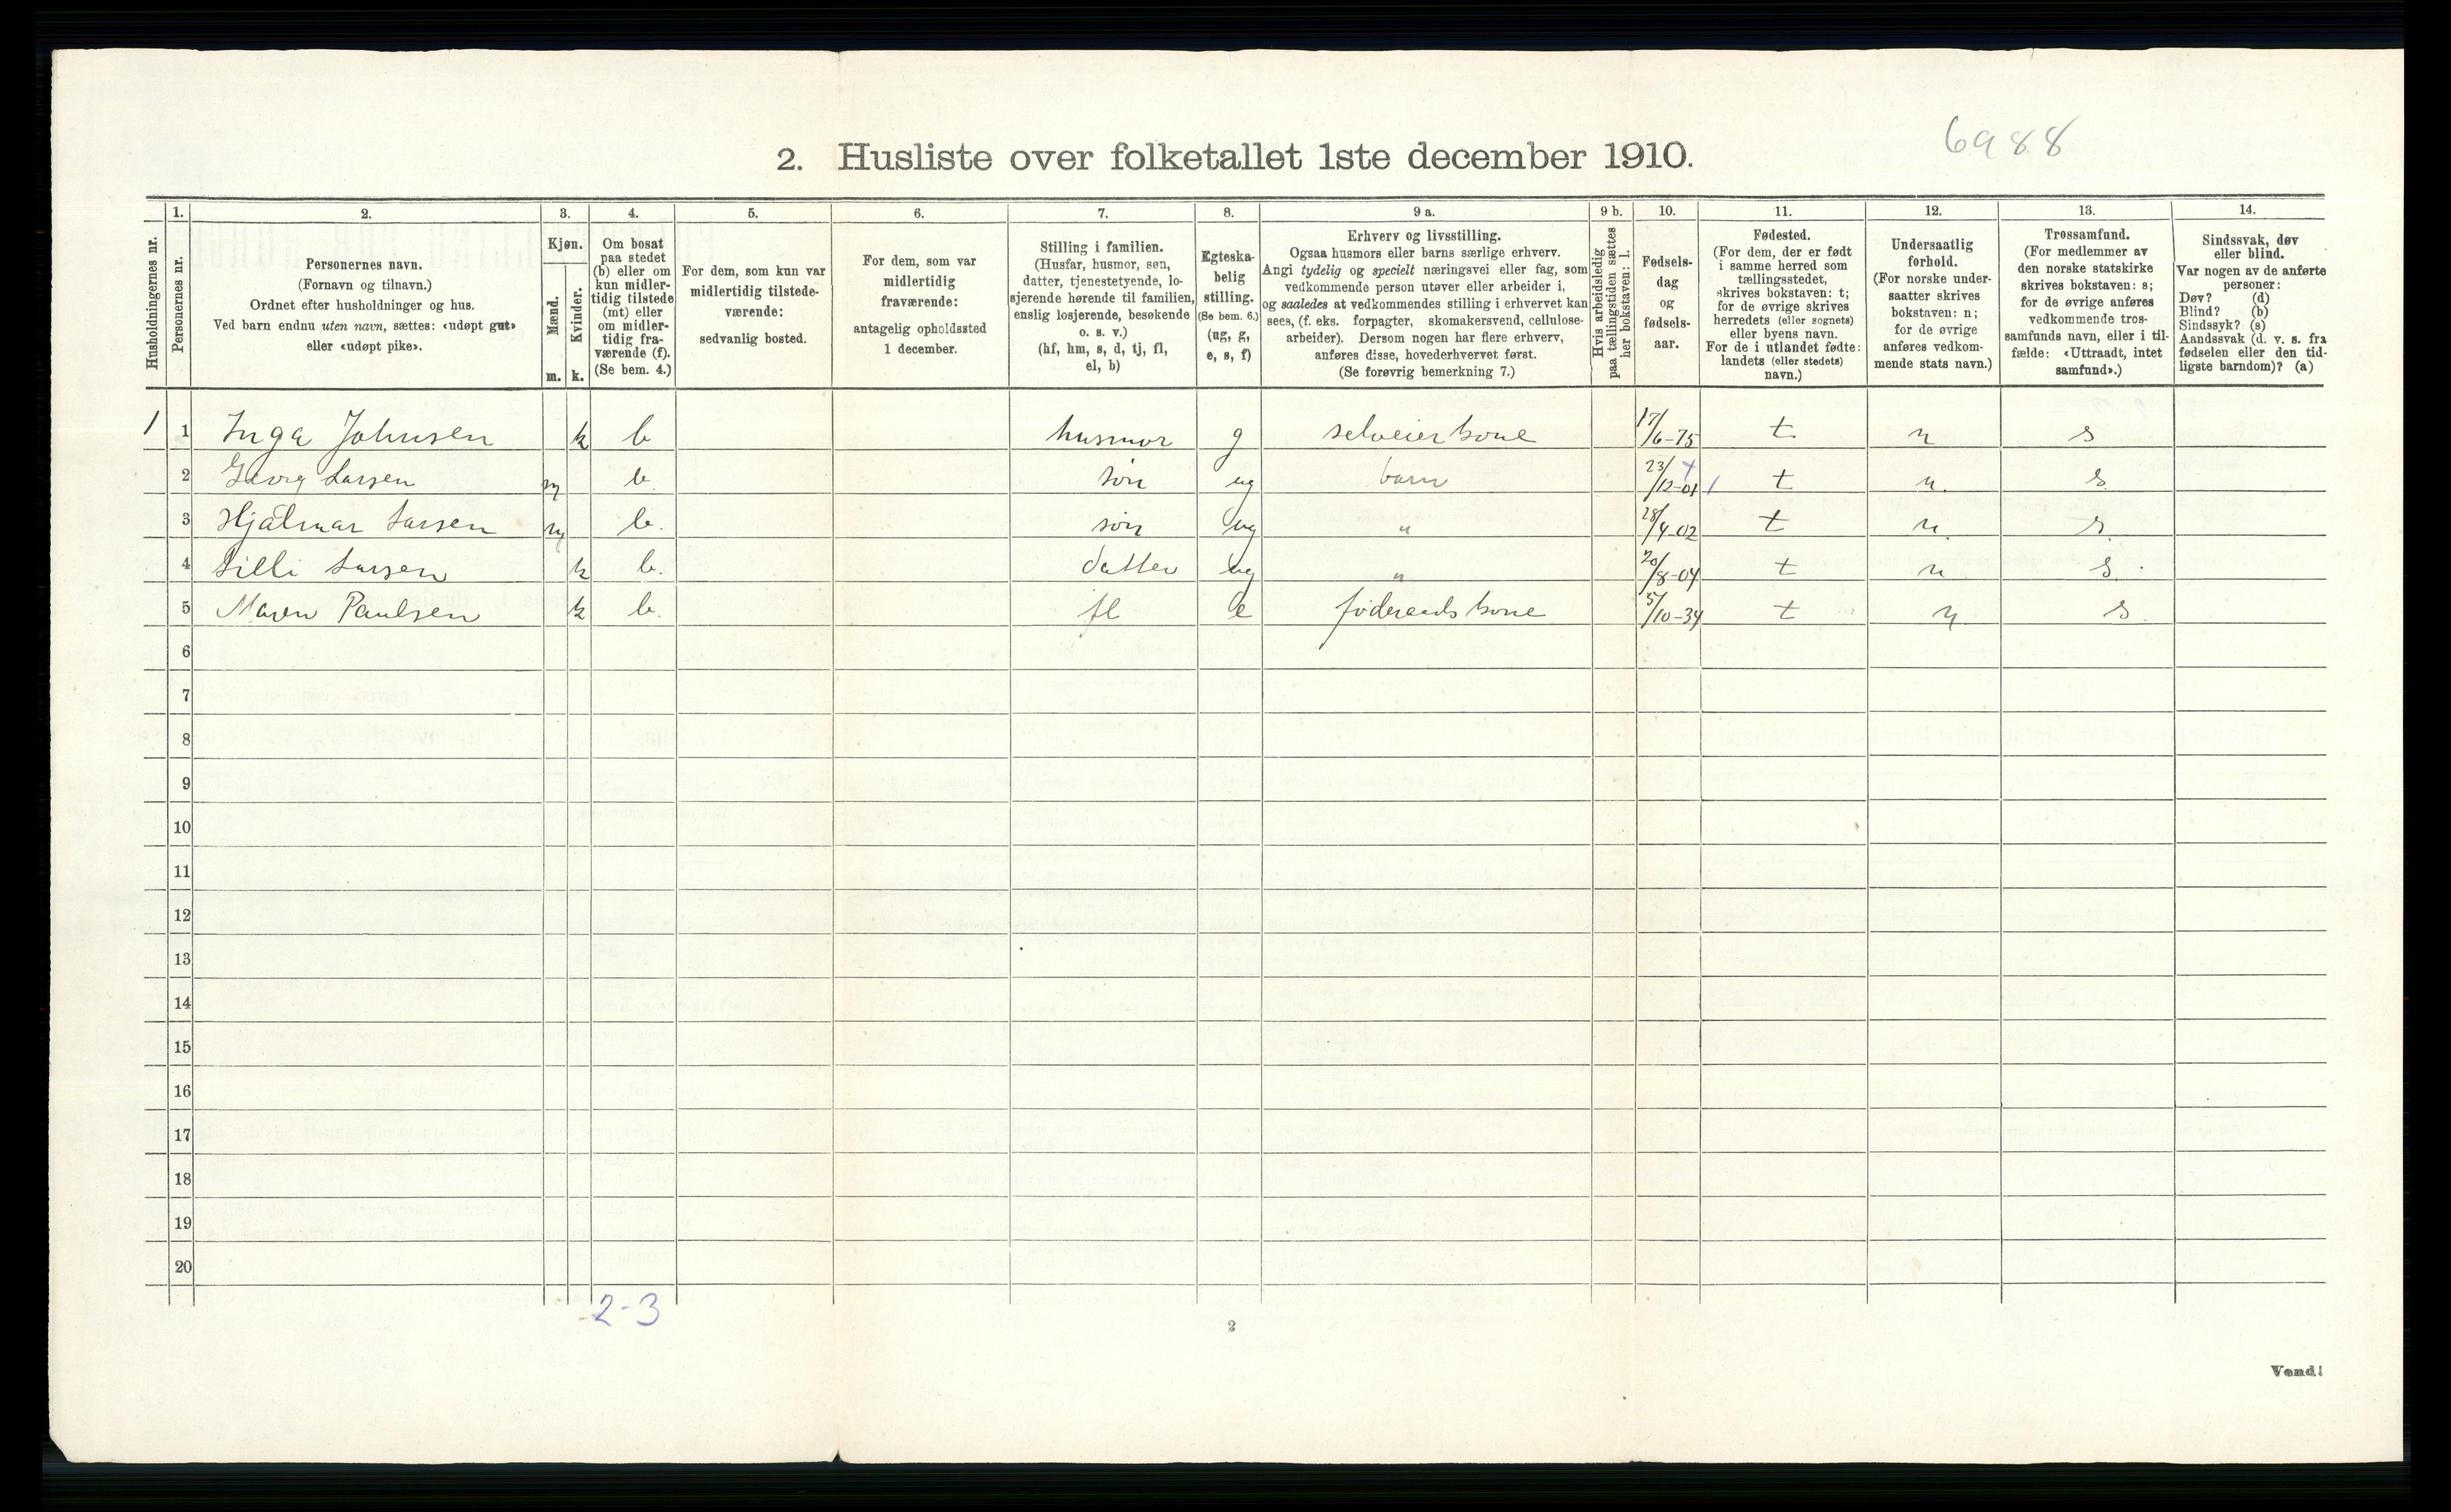 6988
2. Husliste over folketallet 1ste december 1910.
1. 2. 3. 4. 5. 6. 7. 8. 9 a. 9 b. 10. 11. 12. 13. 14.
Husholdningernes nr.
Personernes nr.
Personernes navn.
(Fornavn og tilnavn.)
Ordnet efter husholdninger og hus.
Ved barn endnu uten navn, sættes: «udøpt gut»
eller «udøpt pike».
Kjøn.
Mænd.
Kvinder.
m. k.
Om bosat
paa stedet
(b) eller om
kun midler-
tidig tilstede
(mt) eller
om midler-
tidig fra-
værende (f).
(Se bem. 4.)
For dem, som kun var
midlertidig tilstede-
værende:
sedvanlig bosted.
For dem, som var
midlertidig
fraværende:
antagelig opholdssted
1 december.
Stilling i familien.
(Husfar, husmor, søn,
datter, tjenestetyende, lo-
sjerende hørende til familien,
enslig losjerende, besøkende
o. s. v.)
(hf, hm, s, d, tj, fl,
el, b)
Egteska-
belig
stilling.
(Se bem. 6.)
(ug, g,
e, s, f)
Erhverv og livsstilling.
Ogsaa husmors eller barns særlige erhverv.
Angi tydelig og specielt næringsvei eller fag, som
vedkommende person utøver eller arbeider i,
og saaledes at vedkommendes stilling i erhvervet kan
sees, (f. eks. forpagter, skomakersvend, cellulose-
arbeider). Dersom nogen har flere erhverv,
anføres disse, hovederhvervet først.
(Se forøvrig bemerkning 7.)
Hvis arbeidsledig
paa tællingstiden sættes
her bokstaven: l.
Fødsels-
dag
og
fødsels-
aar.
Fødested.
(For dem, der er født
i samme herred som
tællingsstedet,
skrives bokstaven: t;
for de øvrige skrives
herredets (eller sognets)
eller byens navn.
For de i utlandet fødte:
landets (eller stedets)
navn.)
Undersaatlig
forhold.
(For norske under-
saatter skrives
bokstaven: n;
for de øvrige
anføres vedkom-
mende stats navn.)
Trossamfund.
(For medlemmer av
den norske statskirke
skrives bokstaven: s;
for de øvrige anføres
vedkommende tros-
samfunds navn, eller i til-
fælde: «Uttraadt, intet
samfund».)
Sindssvak, døv
eller blind.
Var nogen av de anførte
personer:
Døv? (d)
Blind? (b)
Sindssyk? (s)
Aandssvak (d. v. s. fra
fødselen eller den tid-
ligste barndom)? (a)
1 1 Inga Johnsen k b husmor g selveierkone 17/6-75 t n s
2 Georg Larsen m b. søn ug barn 23/12-01 t n. s.
3 Hjalmar Larsen m b. søn ug " 28/4-02 t n. s.
4 Lilli Larsen k b. datter ug " 20/8-04 t n s.
5 Maren Paulsen k b. fl e føderaadskone 5/10-34 t n s.
6
7
8
9
10
11
12
13
14
15
16
17
18
19
20
2-3
2
Vend!